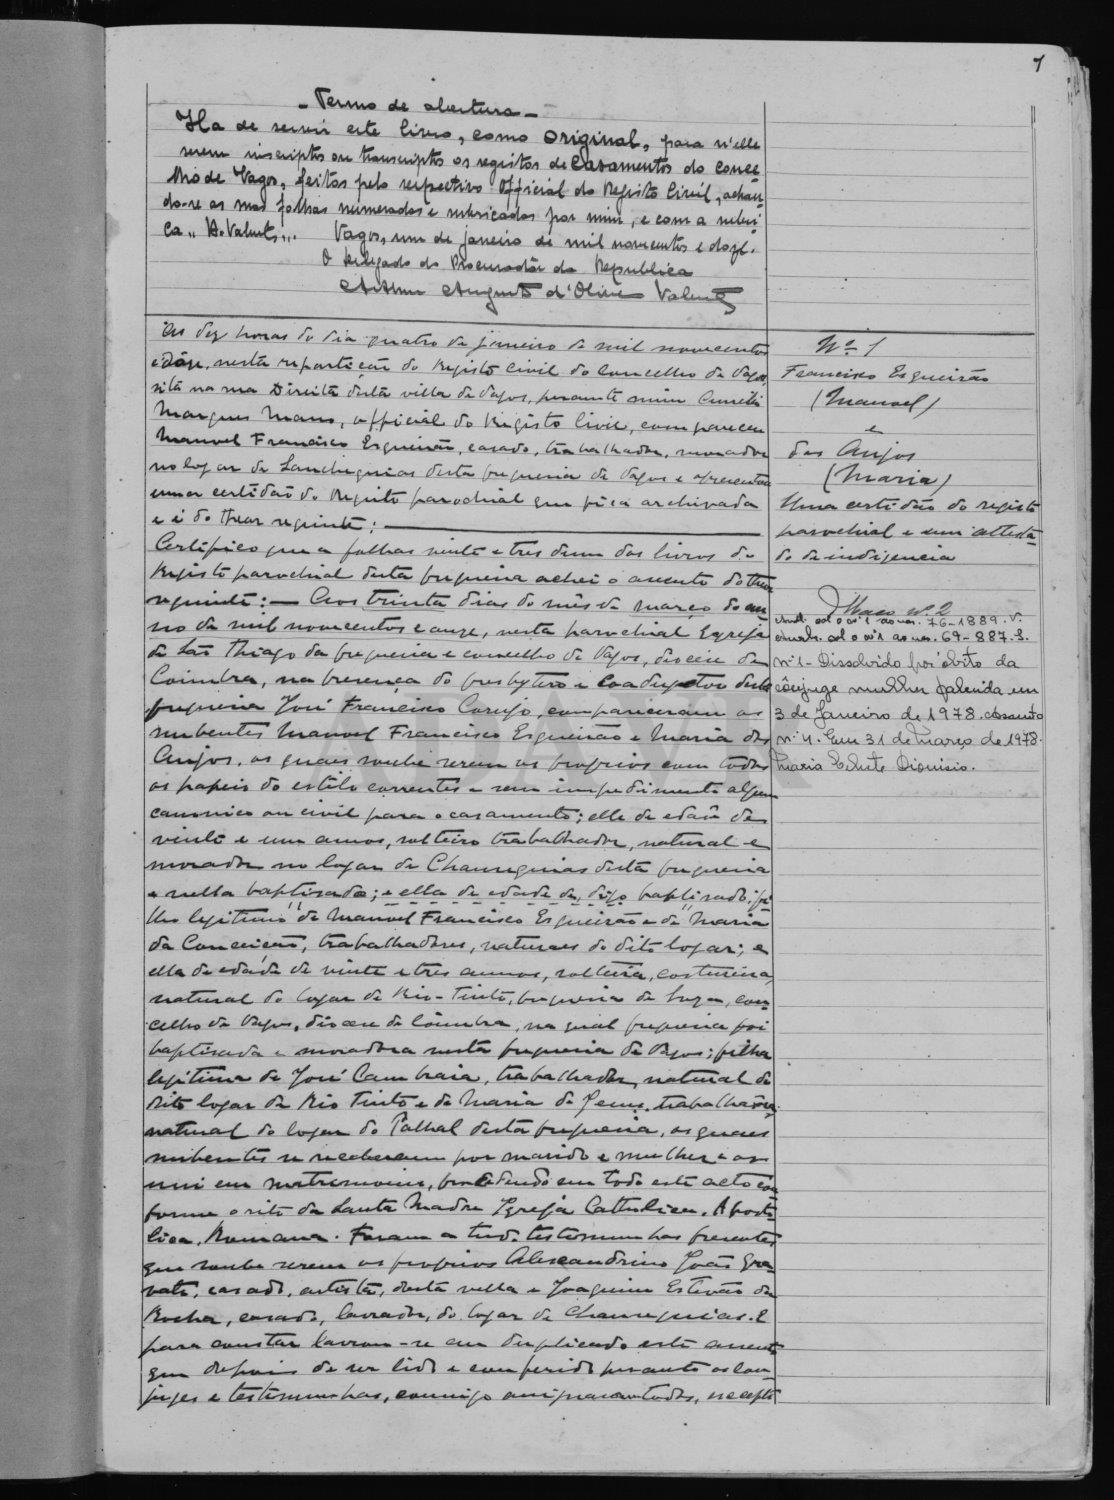 1
- Termo de abertura -
Ha de servir este livro, como original, para n'elle
serem inscriptos ou transcriptos os registos de Casamentos do conce-
lho de Vagos, feitos pelo respectivo official do Registo Civil, achan-
do-se as suas folhas numeradas e rubricadas por mim, e com a rubri-
ca "A. Valente". Vagos, um de janeiro de mil novecentos e doze.
O Delegado do Procurador da Republica
Arthur Augusto d'Oliveira Valente
As dez horas do dia quatro de janeiro de mil novecentos
e doze, nesta repartição do Registo Civil do concelho de Vagos,
sita na rua Direita desta villa de Vagos, perante mim
Marques Mano, official do Registo Civil, compareceu
Manuel Francisco Esgueirão, casado, trabalhador, morador
no logar de Sanchequias desta freguesia de Vagos e apresentou
uma certidão do Registo parochial que fica archivada
e é do theor seguinte:
Certifico que a folhas vinte e tres dum dos livros do
Registo parochial desta freguesia achei o assento do theor
seguinte: — Aos trinta dias do mês de março do an-
no de mil novecentos e onze, nesta parochial Egreja
de São Thiago da freguesia e concelho de Vagos, diocese de
Coimbra, na presença do presbytero e Coadjuctor desta
freguesia José Francisco Corujo, compareceram os
nubentes Manuel Francisco Esgueirão e Maria dos
Anjos, os quaes soube serem os proprios com todos
os papeis do estilo correntes e sem impedimento algum
canonico ou civil para o casamento; elle de edade de
vinte e um annos, solteiro trabalhador, natural e
morador no logar de Chanequias desta freguesia
e nella baptisado; e ella de edade de, digo baptisado; fi-
lho legitimo de Manuel Francisco Esgueirão e de Maria
da Conceição, trabalhadores, naturaes do dito logar; e
ella de edade de vinte e tres annos, solteira, costureira,
natural do logar de Rio-Tinto, freguesia de Soza, con-
celho de Vagos, diocese de Coimbra, na qual freguesia foi
baptisada e moradora nesta freguesia de Vagos; filha
legitima de José Cambraia, trabalhador, natural do
dito logar de Rio Tinto e de Maria de Jesus, trabalhadora
natural do logar do Palhal desta freguesia, os quaes
nubentes se receberam por marido e mulher e os
uni em matrimonio, procedendo em todo este acto con-
forme o rito da Santa Madre Igreja Catholica, Aposto-
lica, Romana. Foram a tudo testemunhas presentes
que soube serem os proprios Alexandrino João Gra-
vato, casado, artista, desta villa e Joaquim Estevão da
Rocha, casado, lavrador, do logar de Chanequias. E
para constar lavrou-se em duplicado este assento
que depois de ser lido e conferido perante os con-
juges e testemunhas, commigo assignaram todos, excepto
Nº 1
Francisco Esgueirão
(Manuel)
e
dos Anjos
(Maria)
Uma certidão do registo
parochial e um attesta-
do de indigencia
Maço nº 2
76-1889. V.
69-887. S.
Nº 1 - Dissolvido por óbito da
cônjuge mulher falecida em
3 de Janeiro de 1978. Assento
nº 4. Em 31 de Março de 1978.
Maria Dionisio.